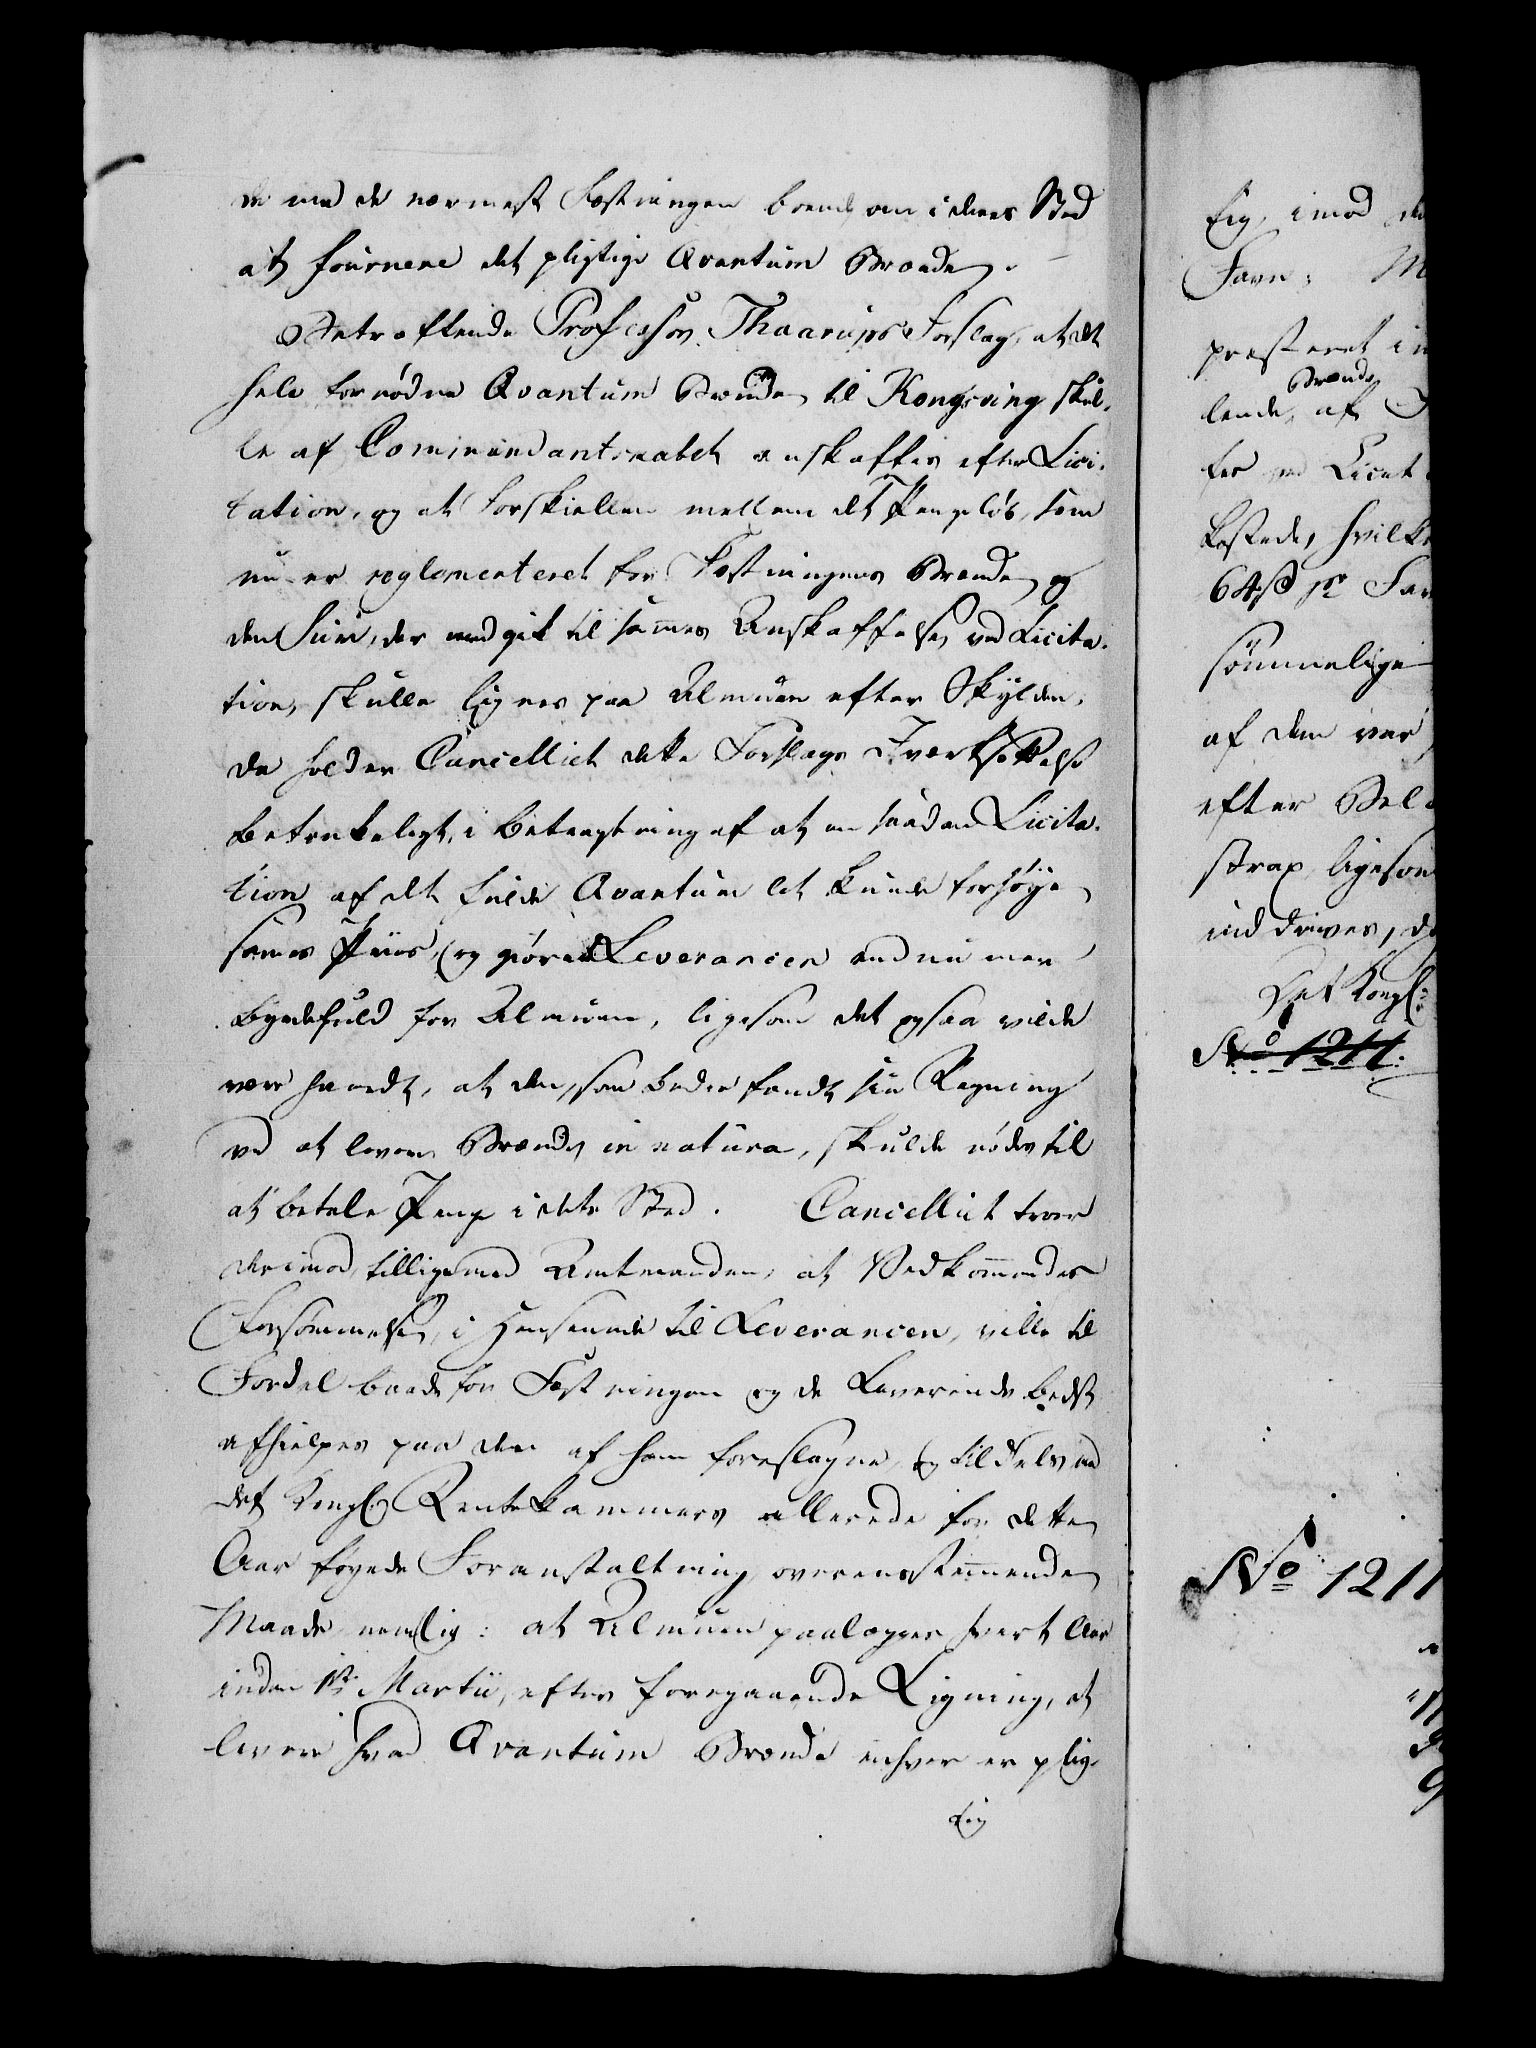 de med de nærmest Fæstningen boende om i deres Sted
at fournere det pligtige Qvantum Brænde.
Betræffende Professor Thaarups Forslag, at det
hele fornødne Qvantum Brænde til Kongsving skul-
le af Commendantskabet anskaffes efter Lici-
tation, og at Forskiellen mellem det Pengeløb, som
nu er reglementeret for Fæstningens Brænde og
den Sum, der medgik til sammes Anskaffelse ved Licita-
tion, skulle lignes paa Almuen efter Skylden,
da holder Cancelliet dette Forslags Iværksættelse
betænkeligt, i Betragtning af at en saadan Licita-
tion af det fulde Qvantum let kunde forhøye
sammes Priis, og giøre Leverancen endnu mere
byrdefuld for Almuen, ligesom det ogsaa vilde
være haardt, at den, som bedre fandt sin Regning
ved at levere Brænde in natura, skulde nødes til
at betale Penge i dets Sted. Cancelliet troer
derimod, tilligemed Amtmanden, at Vedkommendes
Forsømmelse, i Henseende til Leverancen, ville til
Fordel baade for Fæstningen og de Leverende bedst
afhielpes paa den af ham foreslagne, og tildels ved
det Kongl. Rentekammers allerede for dette
Aar føyede Foranstaltning overensstemmende
Maade, nemlig: at Almuen paalægges hvert Aar
inden 1ste Martii, efter foregaaende Ligning, at
levere hvad Qvantum Brænde enhver er plig-
tig
tig, imod de
Favn: M
præsteret in
Brænde
lende, af
fes ved Licit
bostede, hvilke
64 ß pr Fav
sømmelige
af dem var
efter Bel
strax, ligesom
inddrives, d
Det Kongl:
No 1211.
No 1211